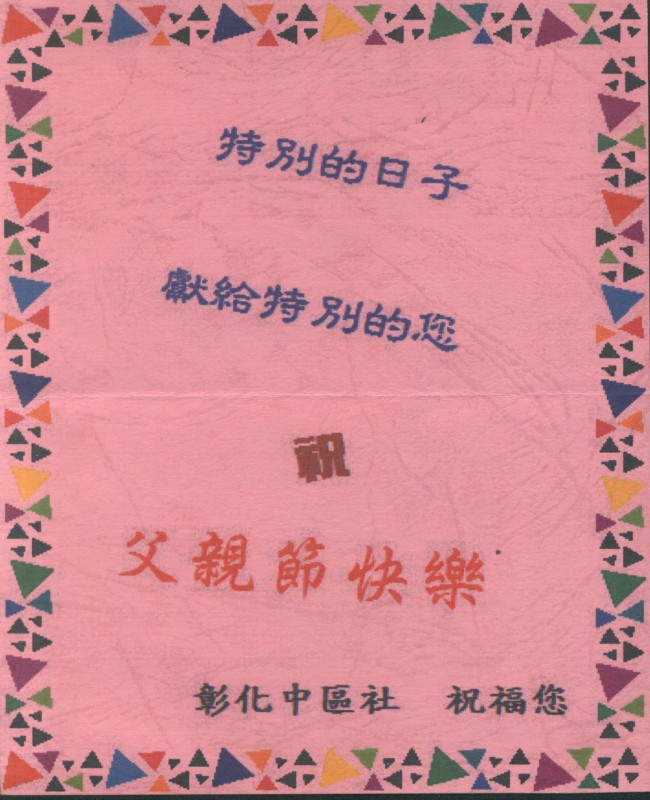 特別的日子
獻給特別的您
祝
父親節快樂
彰化中區社　祝福您